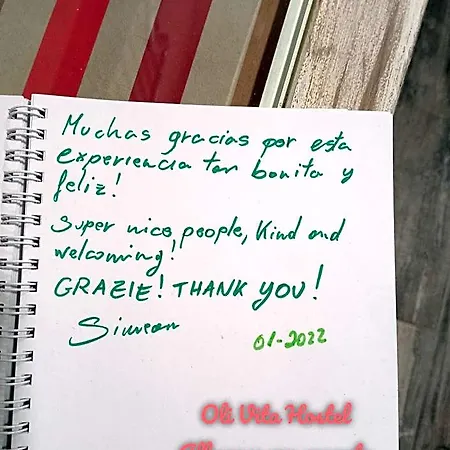 Muchas gracias por esta
experiencia tan bonita y
feliz!
Super nice people, Kind and
welcoming!
GRAZIE! THANK YOU!
Simeon
01-2022
Oli Vita Hostel